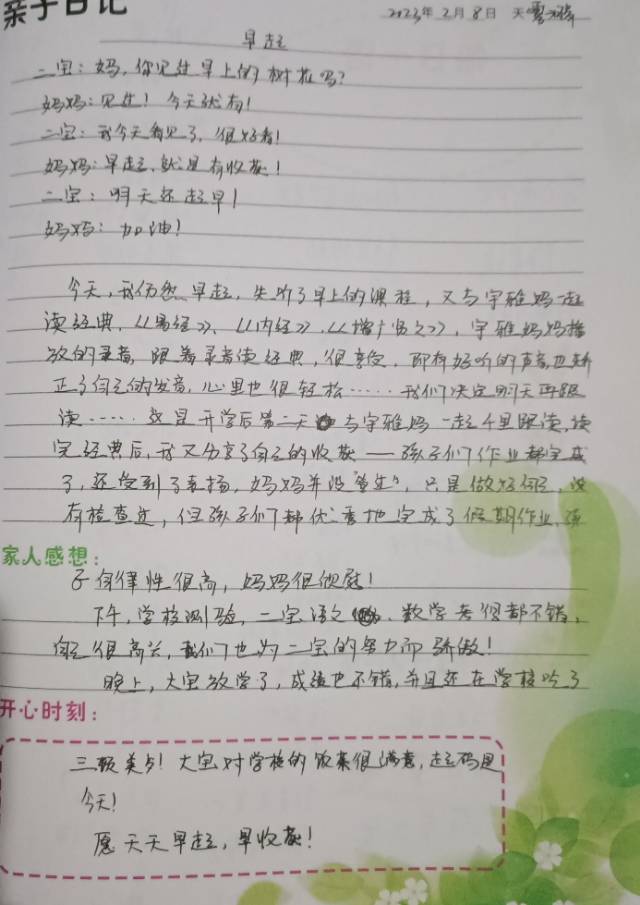 亲子日记
2023年2月8日 天
早起
二宝：妈，你见过早上的树林吗？
妈妈：见过！今天就有！
二宝：我今天看见了，很好看！
妈妈：早起，就是有收获！
二宝：明天还起早！
妈妈：加油！
今天，我仍然早起，先听了早上的课程，又与宇雅妈一起
读经典，《易经》、《内经》、《增广贤文》，宇雅妈妈播
放的录音，跟着录音读经典，很享受，即有好听的声音也矫
正了自己的发音，心里也很轻松……我们决定明天再跟
读……这是开学后第二天与宇雅妈一起千里跟读，读
完经典后，我又分享了自己的收获——孩子们作业都完成
了，还受到了表扬，妈妈并没"管过"，只是做好自己，没
有检查过，但孩子们都优秀地完成了假期作业，孩
家人感想：
子自律性很高，妈妈很欣慰！
下午，学校测验，二宝语文、数学考得都不错，
自己很高兴，我们也为二宝的努力而骄傲！
晚上，大宝放学了，成绩也不错，并且还在学校吃了
开心时刻：
三顿美餐！大宝对学校的饭菜很满意，起码是
今天！
愿天天早起，早收获！